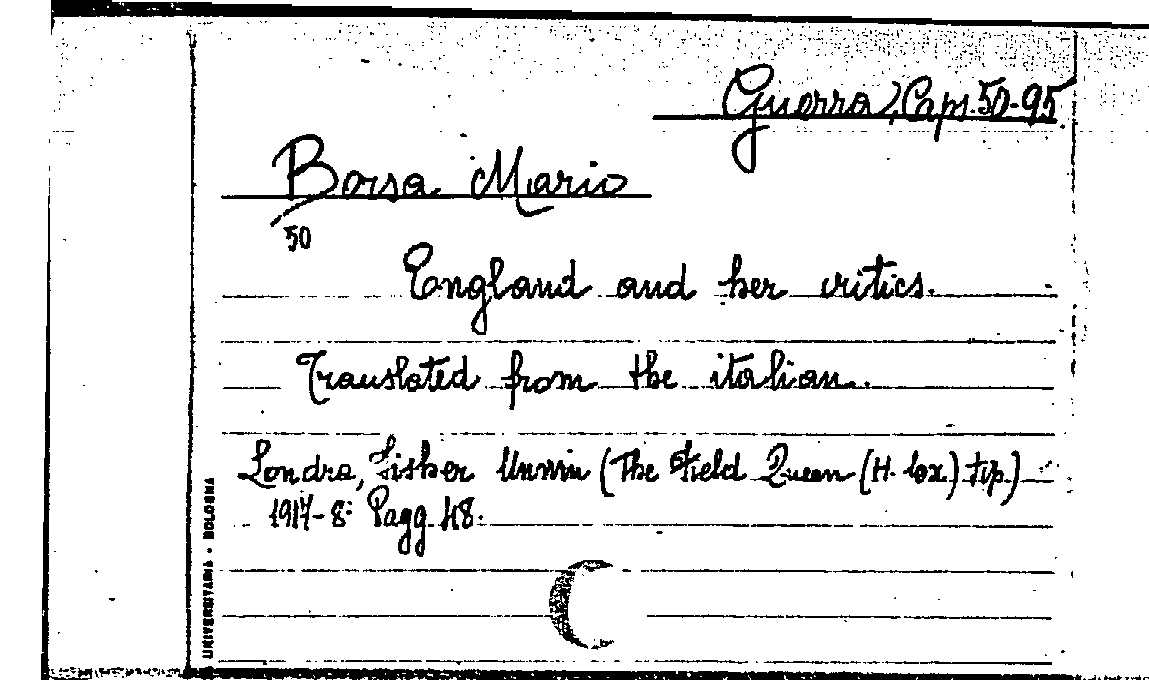 Guerra, Caps. 50-95
Borsa Mario
50
England and her critics.
Translated from the italian.
Londra, Fisher Unwin (The Field Queen (H. Cox) tip.)
1917 - 8º Pagg. 48.
UNIVERSITARIA - BOLOGNA